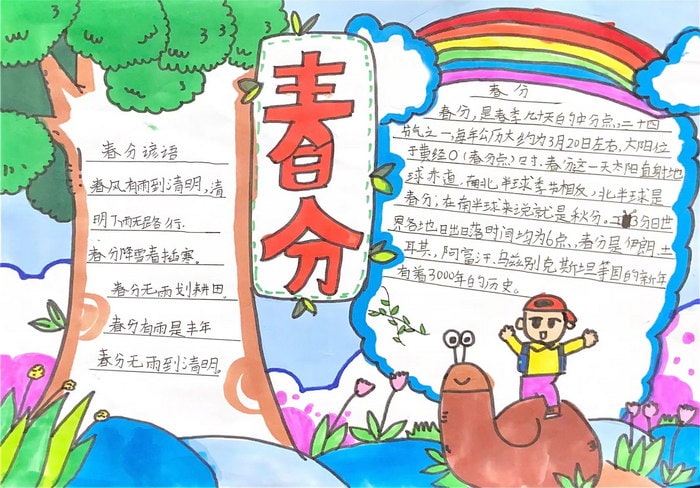 春分
春分谚语
春风有雨到清明,清
明下雨无路行.
春分降雪春播寒.
春分无雨划耕田.
春分有雨是丰年
春分无雨到清明.
春分
春分,是春季九十天的中分点,二十四
节气之一,每年公历大约为3月20日左右,太阳位
于黄经0(春分点)时.春分这一天太阳直射地
球赤道,南北半球季节相反,北半球是
春分,在南半球来说就是秋分。分日世
界各地日出日落时间均为6点、春分是伊朗.土
耳其,阿富汗.乌兹别克斯坦等国的新年
有着3000年的历史。